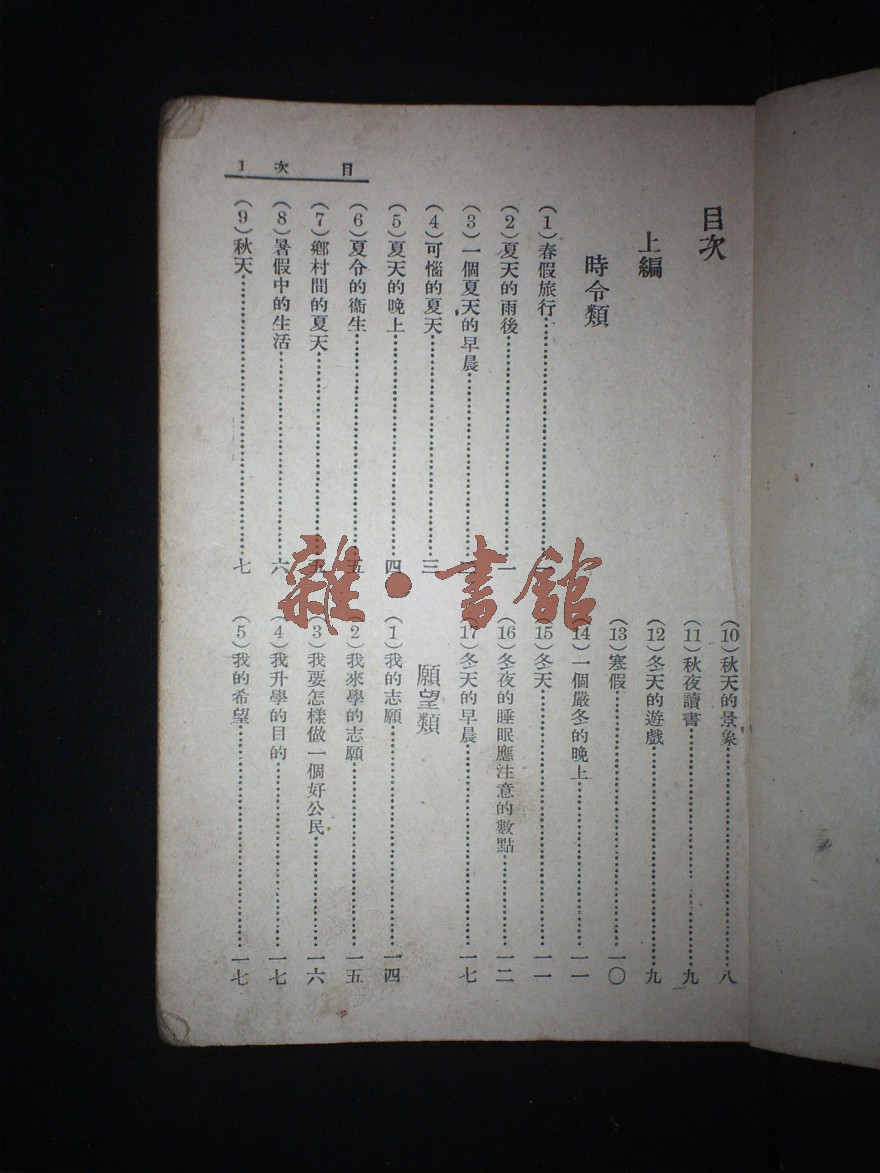 目次 1
目次
上編
時令類
(1)春假旅行…………
(2)夏天的雨後…………一
(3)一個夏天的早晨…………
(4)可惱的夏天…………三
(5)夏天的晚上…………四
(6)夏令的衞生…………五
(7)鄉村間的夏天…………五
(8)暑假中的生活…………六
(9)秋天…………七
(10)秋天的景象…………八
(11)秋夜讀書…………九
(12)冬天的遊戲…………九
(13)寒假…………一〇
(14)一個嚴冬的晚上…………一一
(15)冬天…………一一
(16)冬夜的睡眠應注意的數點…………一二
(17)冬天的早晨…………一七
願望類
(1)我的志願…………一四
(2)我來學的志願…………一五
(3)我要怎樣做一個好公民…………一六
(4)我升學的目的…………一七
(5)我的希望…………一七
雜·書館